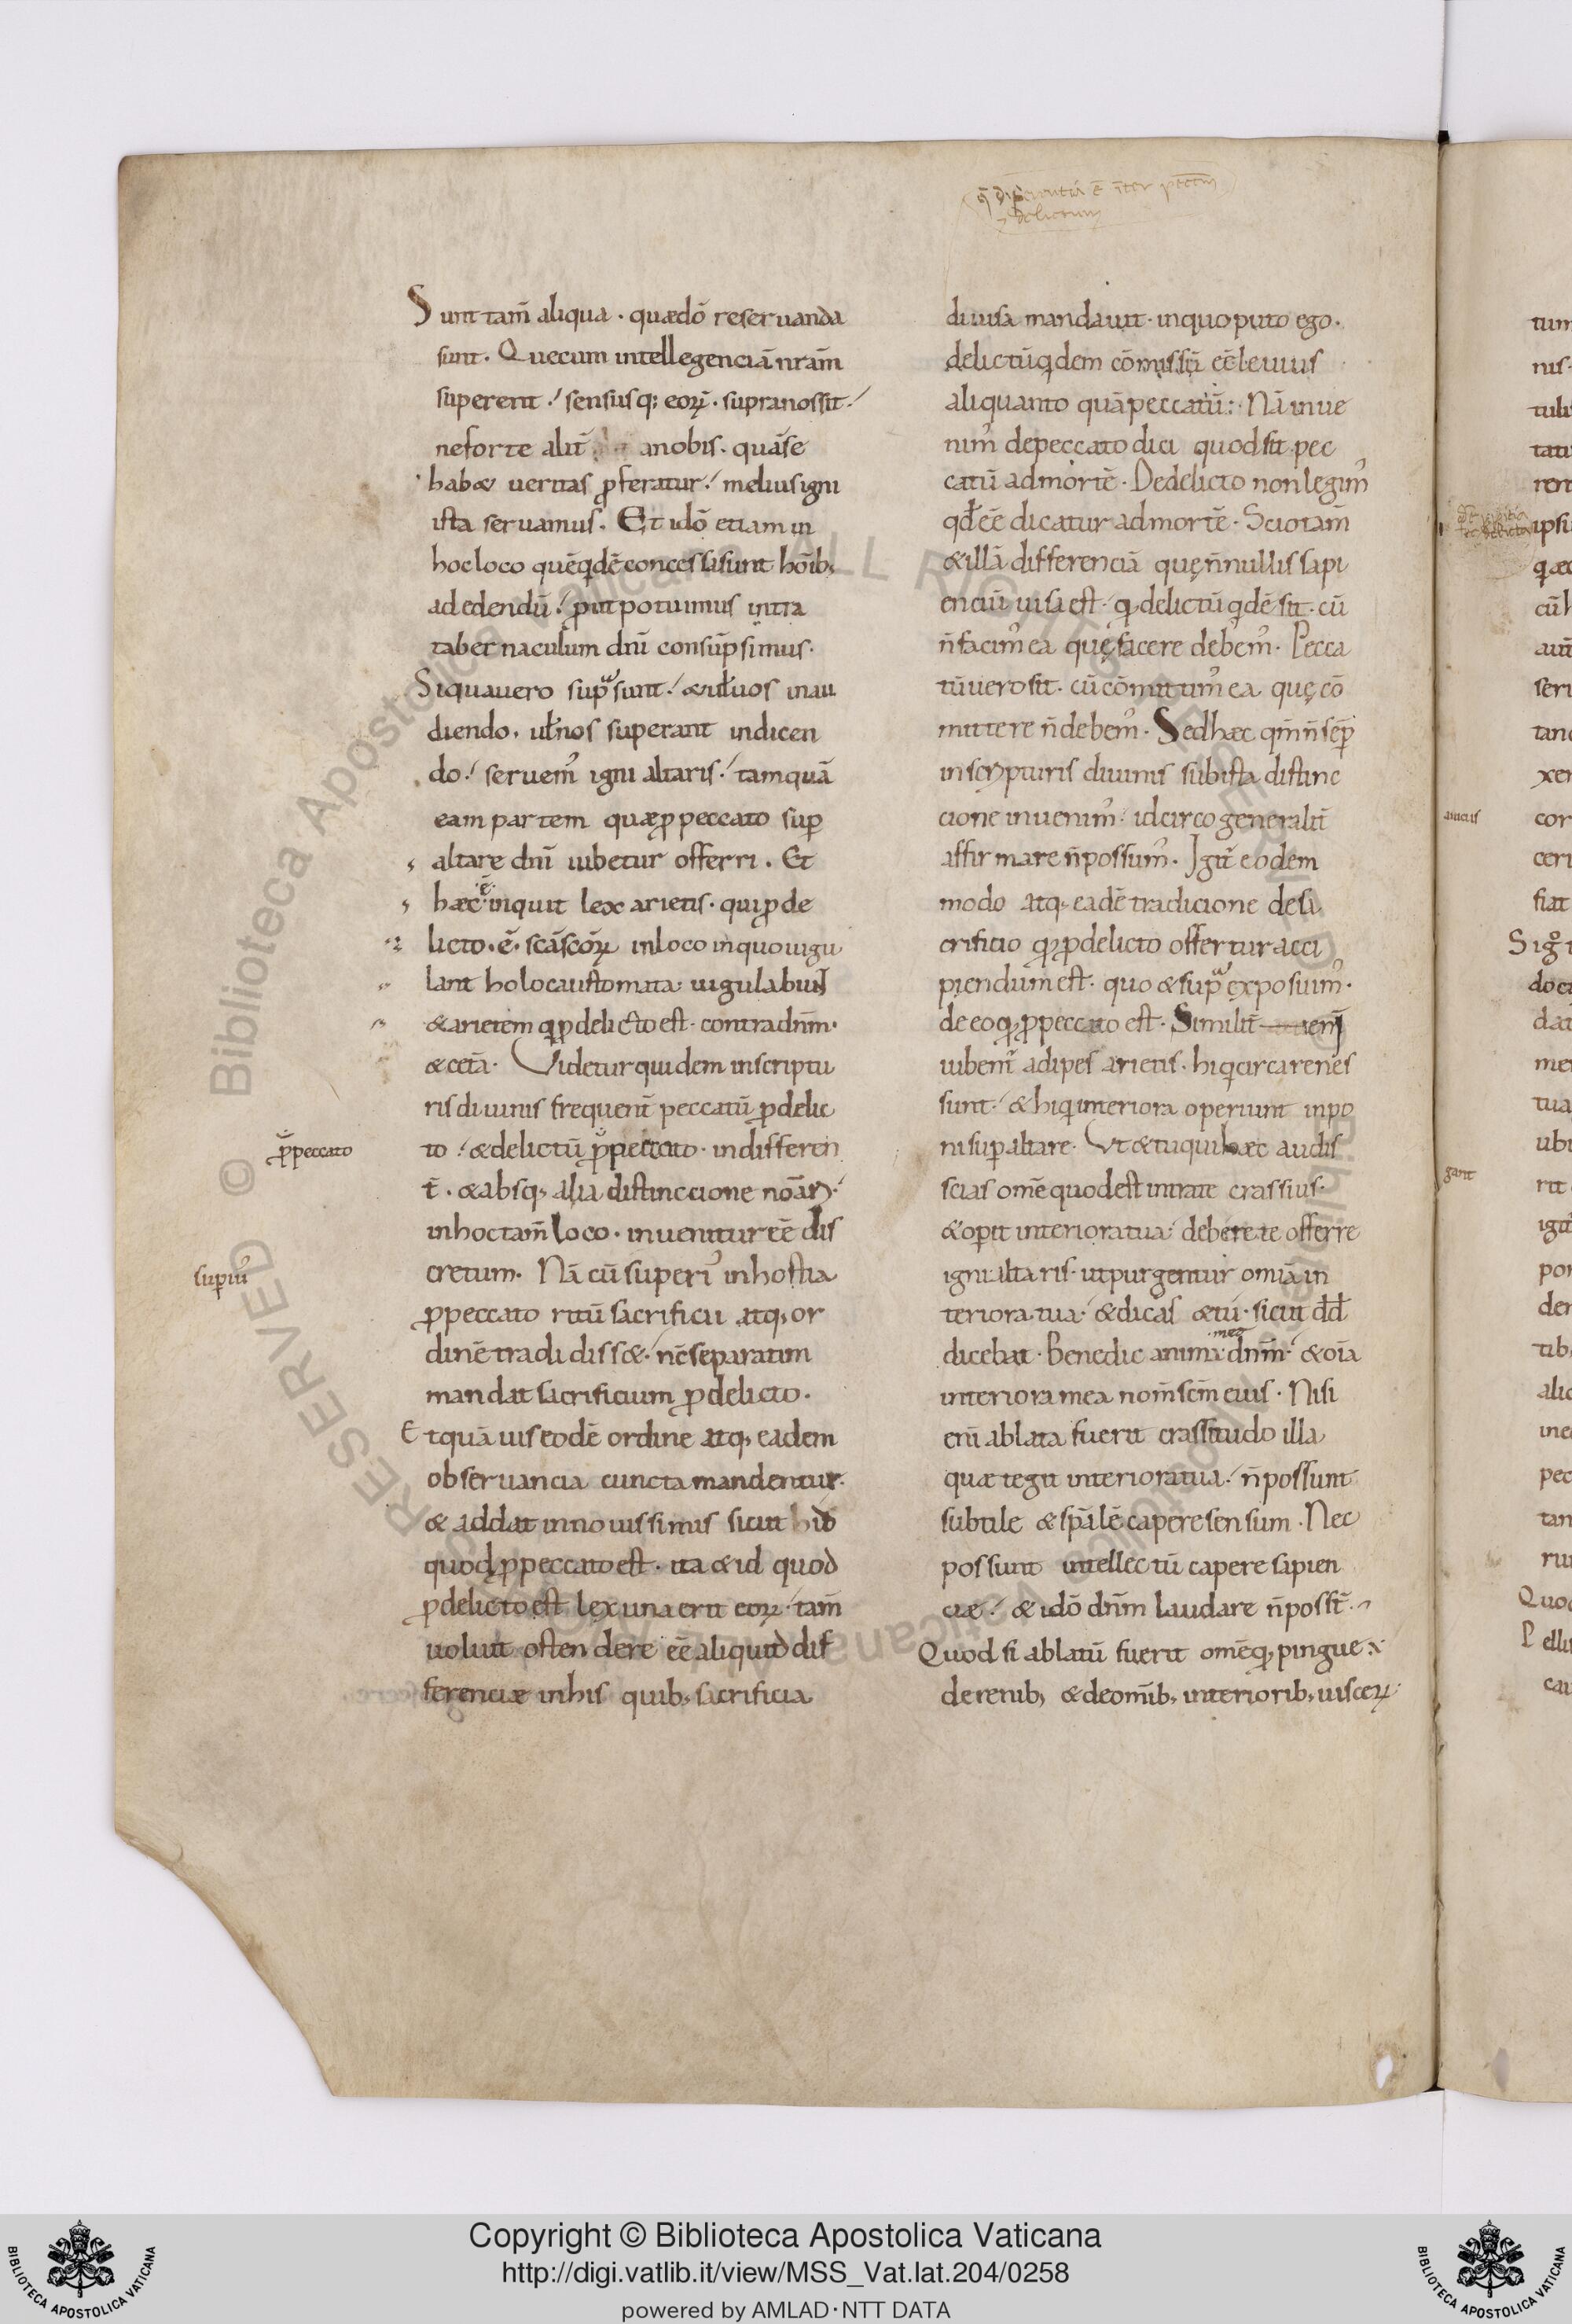 Sunt tam̄ aliqua · quædō reseruanda
sunt · Quecum intellegenciā nrām̄
superent ·/ sensusq; eoꝝ · supranossit ·/
neforte alit̄ anobis · quāse
habæ ueritas ꝓferatur ·/ melius igni
ista seruamus · Et idō etiam in
hoc loco quēq̇dē concessi sunt hōib;
ad edendū ·/ ꝓut potuimus intra
tabernaculum dnī consūpsimus ·
Siquauero supᵃsunt ·/ & uł uos inau
diendo · uł nos superant indicen
do ·/ seruem᾽ igni altaris ·/ tamquā
eam partem quæ ꝓ peccato suꝑ
altare dnī iubetur offerri · Et
hæc ē inquit lex arietis · qui ꝓ de
licto · ē · scāscōꝝ in loco in quo iugu
lant holocaustomata · iugulabunt
& arietem q̇ ꝓ delicto est · contra dnm̄ ·
& cetā · Videtur quidem in scriptu
ris diuinis frequent̄ peccatū ꝓ delic
to ·/ & delictū ꝓ peccato · indifferen
t̄ · & absq; alia distinccione noāri ·/
in hoc tam̄ loco · inuenitur eē dis
cretum · Nā cū superi᾽ in hostia
ꝓ peccato ritū sacrificii atq; or
dinē tradidiss& ·/ nc̄ separatim
mandat sacrificium ꝓ delicto ·
Et quāuis eodē ordine atq; eadem
obseruancia cuncta mandentur ·
& addat in nouissimis sicut id
quod ꝓ peccato est · ita & id quod
ꝓ delicto est lex una erit eoꝝ ·/ tam̄
uoluit ostendere eē aliquid dif
ferenciæ in his quib; sacrificia
ꝓ peccato
supiu᾽
diuisa mandauit · in quo puto ego ·
delictū q̇dem cōmissū eē leuius
aliquanto quā peccatū · Nā inue
nim᾽ de peccato dici quod sit pec
catū ad mortē · De delicto non legim᾽
qđ eē dicatur ad mortē · Scio tam̄
& illā differenciā quę n̄nullis sapi
enciū uisa est · qđ delictū q̇dē sit · cū
n̄ facim᾽ ea quę facere debem᾽ · Pecca
tū uero sit · cū cōmittim᾽ ea quę cō
mittere n̄ debem᾽ · Sed hæc qm̄ n̄ sēꝑ
in scripturis diuinis sub ista distinc
cione inuenim᾽ ·/ idcirco generalit̄
affirmare n̄ possum᾽ · Igit̄ eodem
modo atq; eadē tradicione de sa
crificio qđ ꝓ delicto offertur acci
piendum est · quo & supᵃ exposuim᾽ ·
de eo qđ ꝓ peccato est · Similit̄
iubent̄ adipes arietis · hi q̇ circa renes
sunt · & hi q̇ interiora operiunt inpo
ni suꝑ altare · Vt & tu qui hæc audis
scias omē quod est intra te crassius ·
& oꝑit interiora tua ·/ debere te offerre
igni altaris · ut purgentur omīa in
teriora tua ·/ & dicas &tū · sicut dđ
dicebat · Benedic anima mea dnm̄ ·/ & oīa
interiora mea nom̄ scm̄ eius · Nisi
eni ablata fuerit crassitudo illa
quæ tegit interiora tua ·/ n̄ possunt
subtile & spālē capere sensum · Nec
possunt intellectū capere sapien
ciæ ·/ & idō dnm̄ laudare n̄ posst̄ ·
Quod si ablatū fuerit omē qđ pingue ē
de renib; & de omīb; interiorib; uisceꝝ
Copyright © Biblioteca Apostolica Vaticana
http://digi.vatlib.it/view/MSS_Vat.lat.204/0258
powered by AMLAD·NTT DATA